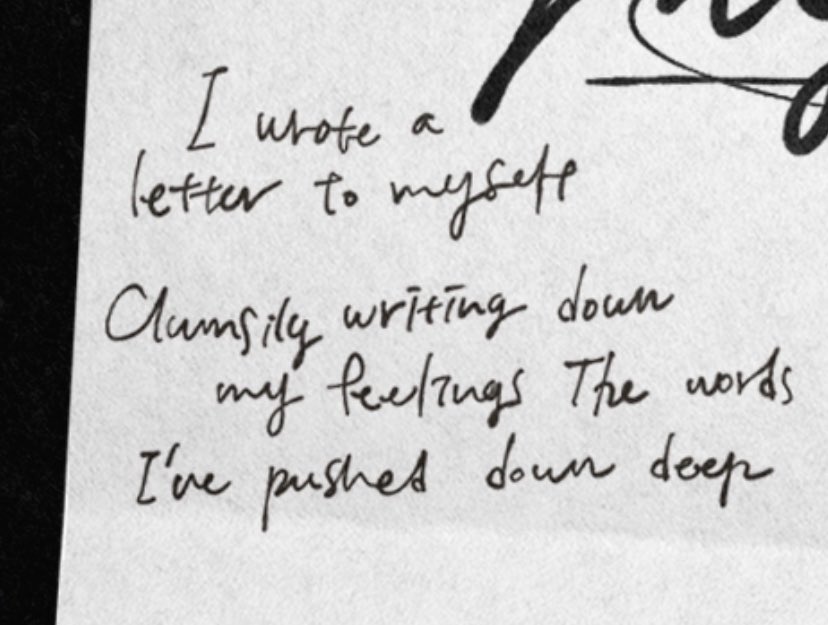 I wrote a
letter to myself
Clumsily writing down
my feelings The words
I've pushed down deep